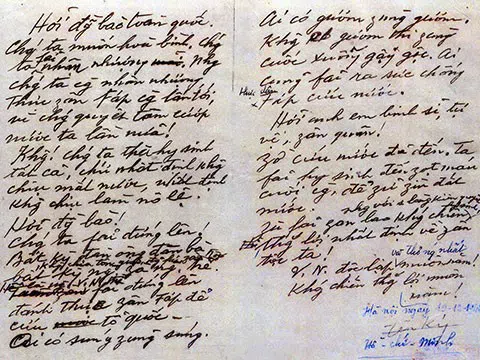 Hỡi đồng bào toàn quốc.
Chúng ta muốn hoà bình, chúng
ta fải nhân nhượng. Nhưng
chúng ta càng nhân nhượng
thực zân Fáp càng lấn tới,
vì chúng quyết tâm cướp
nước ta lần nữa!
Không! chúng ta thà hy sinh
tất cả, chứ nhất định không
chịu mất nước, nhất định
không chịu làm nô lệ.
Hỡi đồng bào!
Chúng ta fải đứng lên!
đứng lên
đánh thực zân Fáp để
cứu tổ quốc.
Ai có súng zùng súng.
Ai có gươm zùng gươm.
Không có gươm thì zùng
cuốc xuổng gậy gộc. Ai
cũng fải ra sức chống
Fáp cứu nước.
Hỡi anh em binh sĩ, tự
vệ, zân quân!
Zờ cứu nước đã đến. Ta
fải hy sinh đến zọt máu
cuối cùng, để zữ zìn đất
nước.
Zù fải gian lao kháng chiến,
thắng lợi nhất định về zân
tộc ta!
V.N. độc lập và thống nhất muôn năm!
Kháng chiến thắng lợi muôn
năm!
Hà nội ngày 19-12-
Hồ-chí-Minh